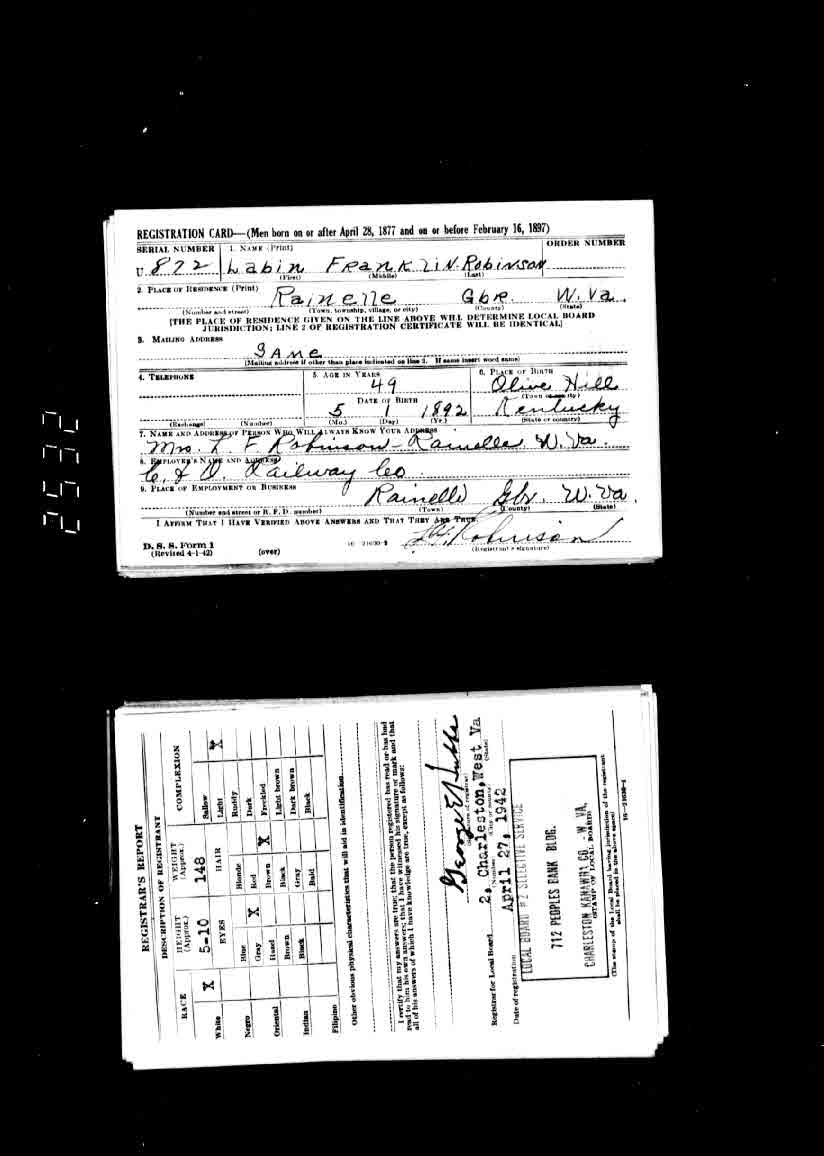 REGISTRATION CARD—(Men born on or after April 28, 1877 and on or before February 16, 1897)
SERIAL NUMBER 1. NAME (Print) ORDER NUMBER
U 872 Labin FRANKLIN RobiNSON
(First) (Middle) (Last)
2. PLACE OF RESIDENCE (Print)
Rainelle Gbr. W. Va.
(Number and street) (Town, township, village, or city) (County) (State)
[THE PLACE OF RESIDENCE GIVEN ON THE LINE ABOVE WILL DETERMINE LOCAL BOARD
JURISDICTION; LINE 2 OF REGISTRATION CERTIFICATE WILL BE IDENTICAL]
3. MAILING ADDRESS
SAME
(Mailing address if other than place indicated on line 2. If same insert word same)
4. TELEPHONE 5. AGE IN YEARS 6. PLACE OF BIRTH
49 Olive Hill
DATE OF BIRTH (Town or county)
5 1 1892 Kentucky
(Exchange) (Number) (Mo.) (Day) (Yr.) (State or country)
7. NAME AND ADDRESS OF PERSON WHO WILL ALWAYS KNOW YOUR ADDRESS
Mrs. L. F. Robinson - Rainelle W. Va.
8. EMPLOYER'S NAME AND ADDRESS
C. & O. Railway Co
9. PLACE OF EMPLOYMENT OR BUSINESS
Rainelle Gbr. W. Va.
(Number and street or R. F. D. number) (Town) (County) (State)
I AFFIRM THAT I HAVE VERIFIED ABOVE ANSWERS AND THAT THEY ARE TRUE.
D. S. S. Form 1
(Revised 4-1-42) (over) 16—21630-2 Robinson
(Registrant's signature)
2532
REGISTRAR'S REPORT
DESCRIPTION OF REGISTRANT
RACE HEIGHT (Approx.) WEIGHT (Approx.) COMPLEXION
White X 5-10 148 Sallow
EYES HAIR Light X
Negro Blue Blonde Ruddy
Gray X Red Dark
Oriental Hazel Brown X Freckled
Brown Black Light brown
Indian Black Gray Dark brown
Bald Black
Filipino
Other obvious physical characteristics that will aid in identification
I certify that my answers are true; that the person registered has read or has had
read to him his own answers; that I have witnessed his signature or mark and that
all of his answers of which I have knowledge are true, except as follows:
George E
(Signature of registrar)
Registrar for Local Board 2, Charleston, West Va
(Number) (City or county) (State)
Date of registration April 27, 1942
LOCAL BOARD #2 SELECTIVE SERVICE
712 PEOPLES BANK BLDG.
CHARLESTON KANAWHA CO. - W VA,
(STAMP OF LOCAL BOARD)
(The stamp of the Local Board having jurisdiction of the registrant
shall be placed in the above space)
16—21630-1